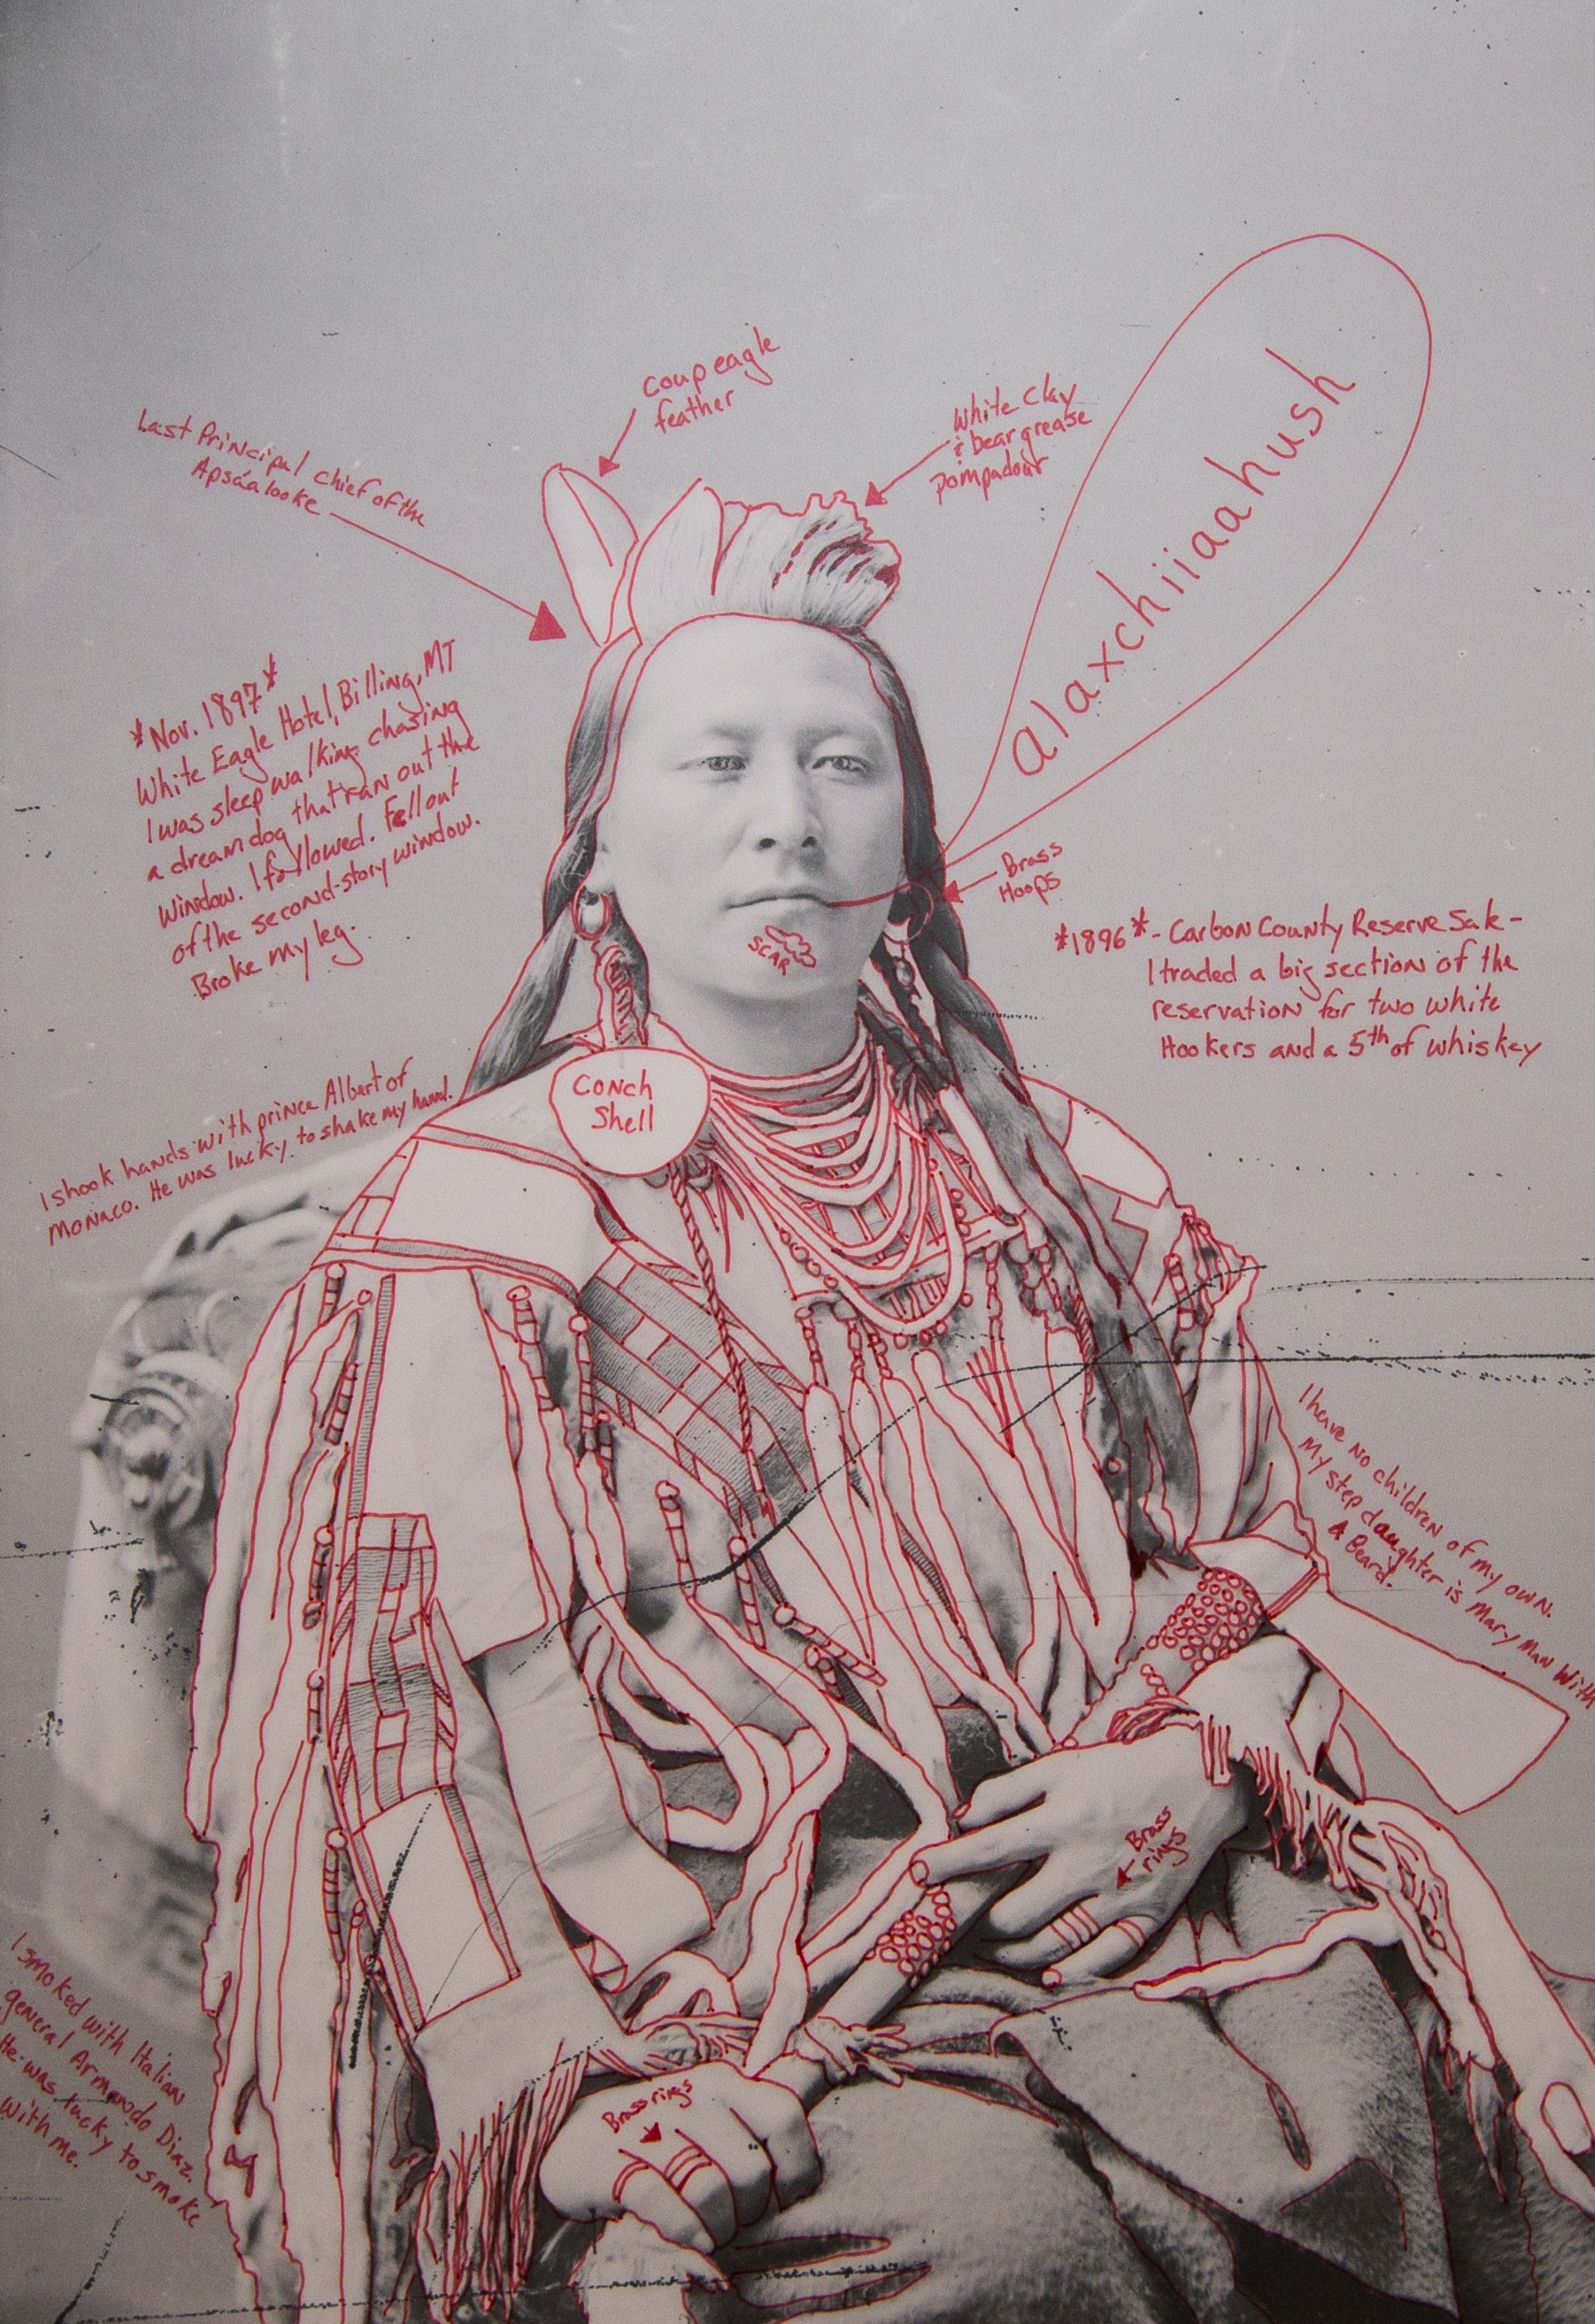 Coup eagle
feather
White Clay
& bear grease
pompadour
Last Principal chief of the
Apsáalooke
alaxchiiaahush
*Nov. 1897*
White Eagle Hotel, Billing, MT
I was sleep walking chasing
a dream dog that ran out the
window. I followed. Fell out
of the second-story window.
Broke my leg.
Brass
Hoops
SCAR
*1896* - Carbon County Reserve Sale -
I traded a big section of the
reservation for two white
Hookers and a 5th of whiskey
Conch
Shell
I shook hands with prince Albert of
Monaco. He was lucky to shake my hand.
I have no children of my own.
My step daughter is Mary Man With
A Beard.
Brass
rings
Brass rings
I smoked with Italian
general Armando Diaz.
He was lucky to smoke
with me.